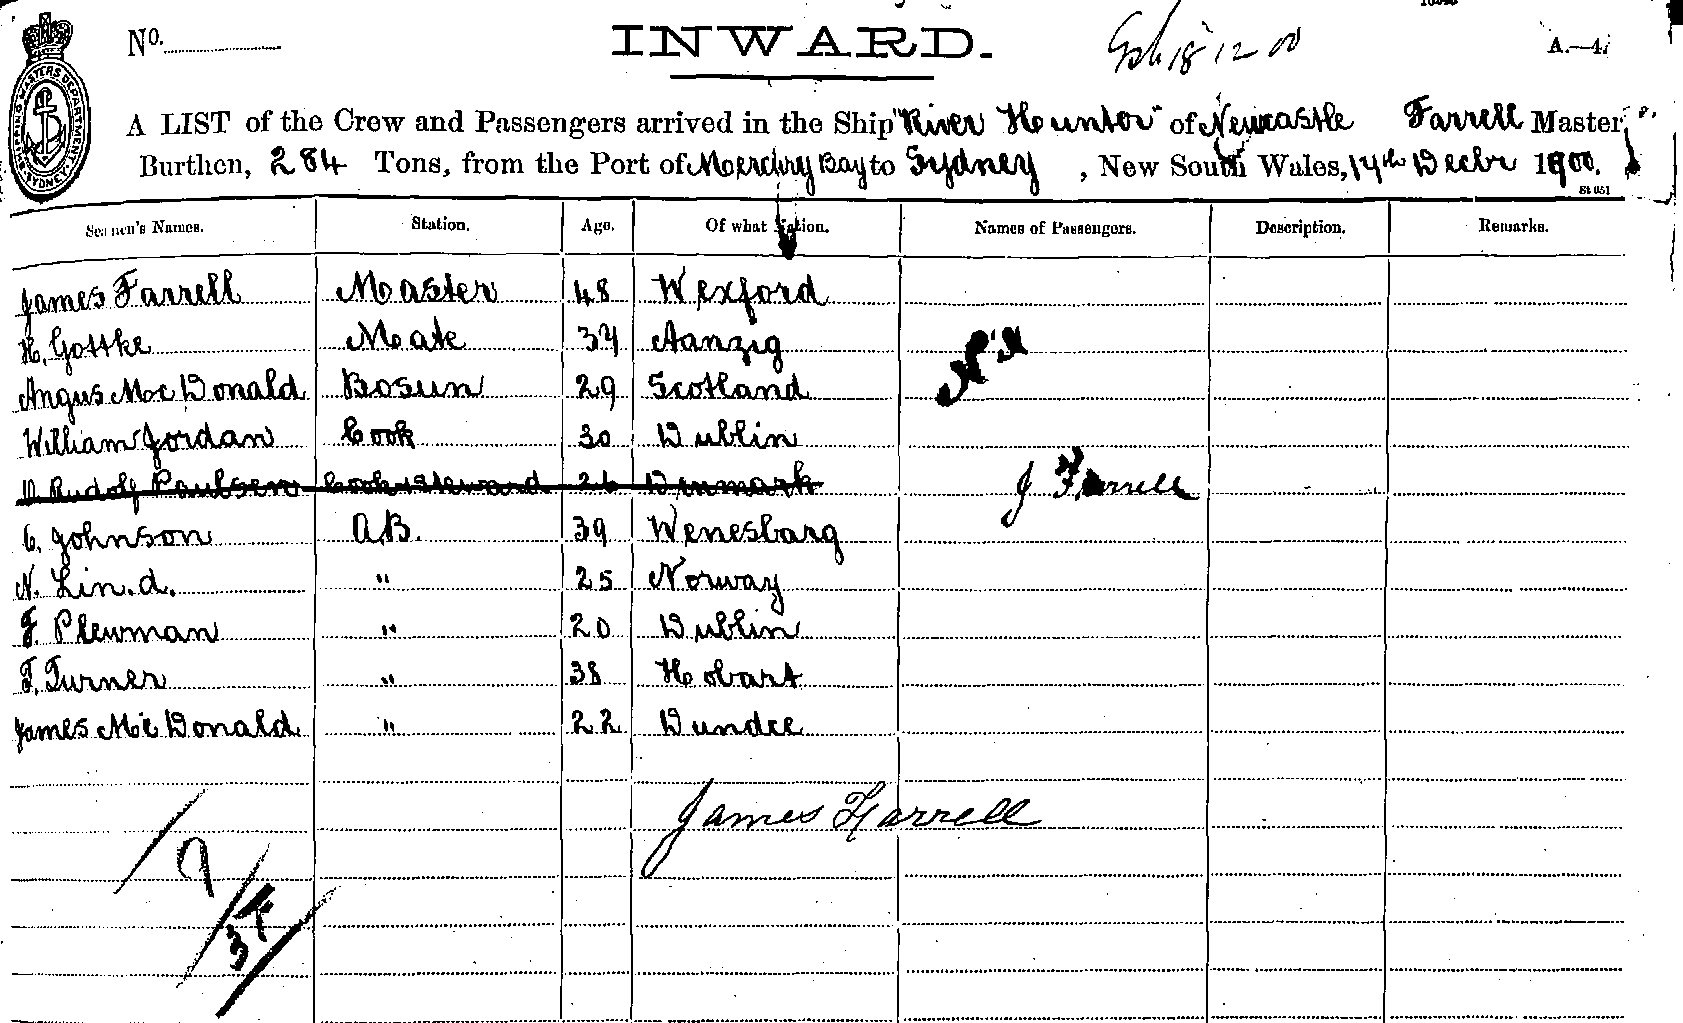 No.
INWARD.
18 12 00
A.—4.
SHIPPING MASTERS DEPARTMENT SYDNEY
A LIST of the Crew and Passengers arrived in the Ship "River Hunter" of Newcastle Farrell Master,
Burthen, 284 Tons, from the Port of Mercury Bay to Sydney, New South Wales, 14th Decbr 1900.
St 051
Seamen's Names. Station. Age. Of what Nation. Names of Passengers. Description. Remarks.
James Farrell Master 48 Wexford
H. Gottke Mate 34 Danzig
Nil
Angus Mc Donald Bosun 29 Scotland
William Jordan Cook 30 Dublin
D. Rudolf Paulsen Cook & Steward 26 Denmark
J Farrell
C. Johnson A.B. 39 Wenesbarg
N. Lin.d. " 25 Norway
F. Plewman " 20 Dublin
F. Turner " 38 Hobart
James Mc Donald " 22 Dundee
James Farrell
9